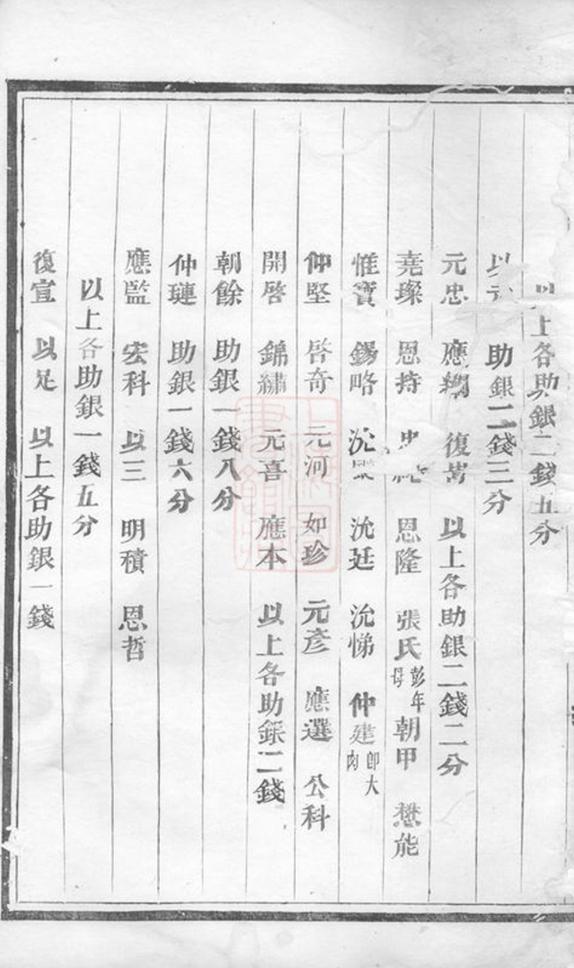 以上各助銀二錢五分
助銀二錢三分
元忠 應翔 復嵩 以上各助銀二錢二分
堯璨 恩持 恩隆 張氏彭年母 朝甲 懋能
惟寶 錫略 沈廷 沈悌 仲建即大肉
仲堅 啓奇 元河 如珍 元彥 應選 公科
開啓 錦繡 元喜 應本 以上各助銀二錢
朝餘 助銀一錢八分
仲璉 助銀一錢六分
應監 宏科 以三 明積 恩哲
以上各助銀一錢五分
復宣 以足 以上各助銀一錢